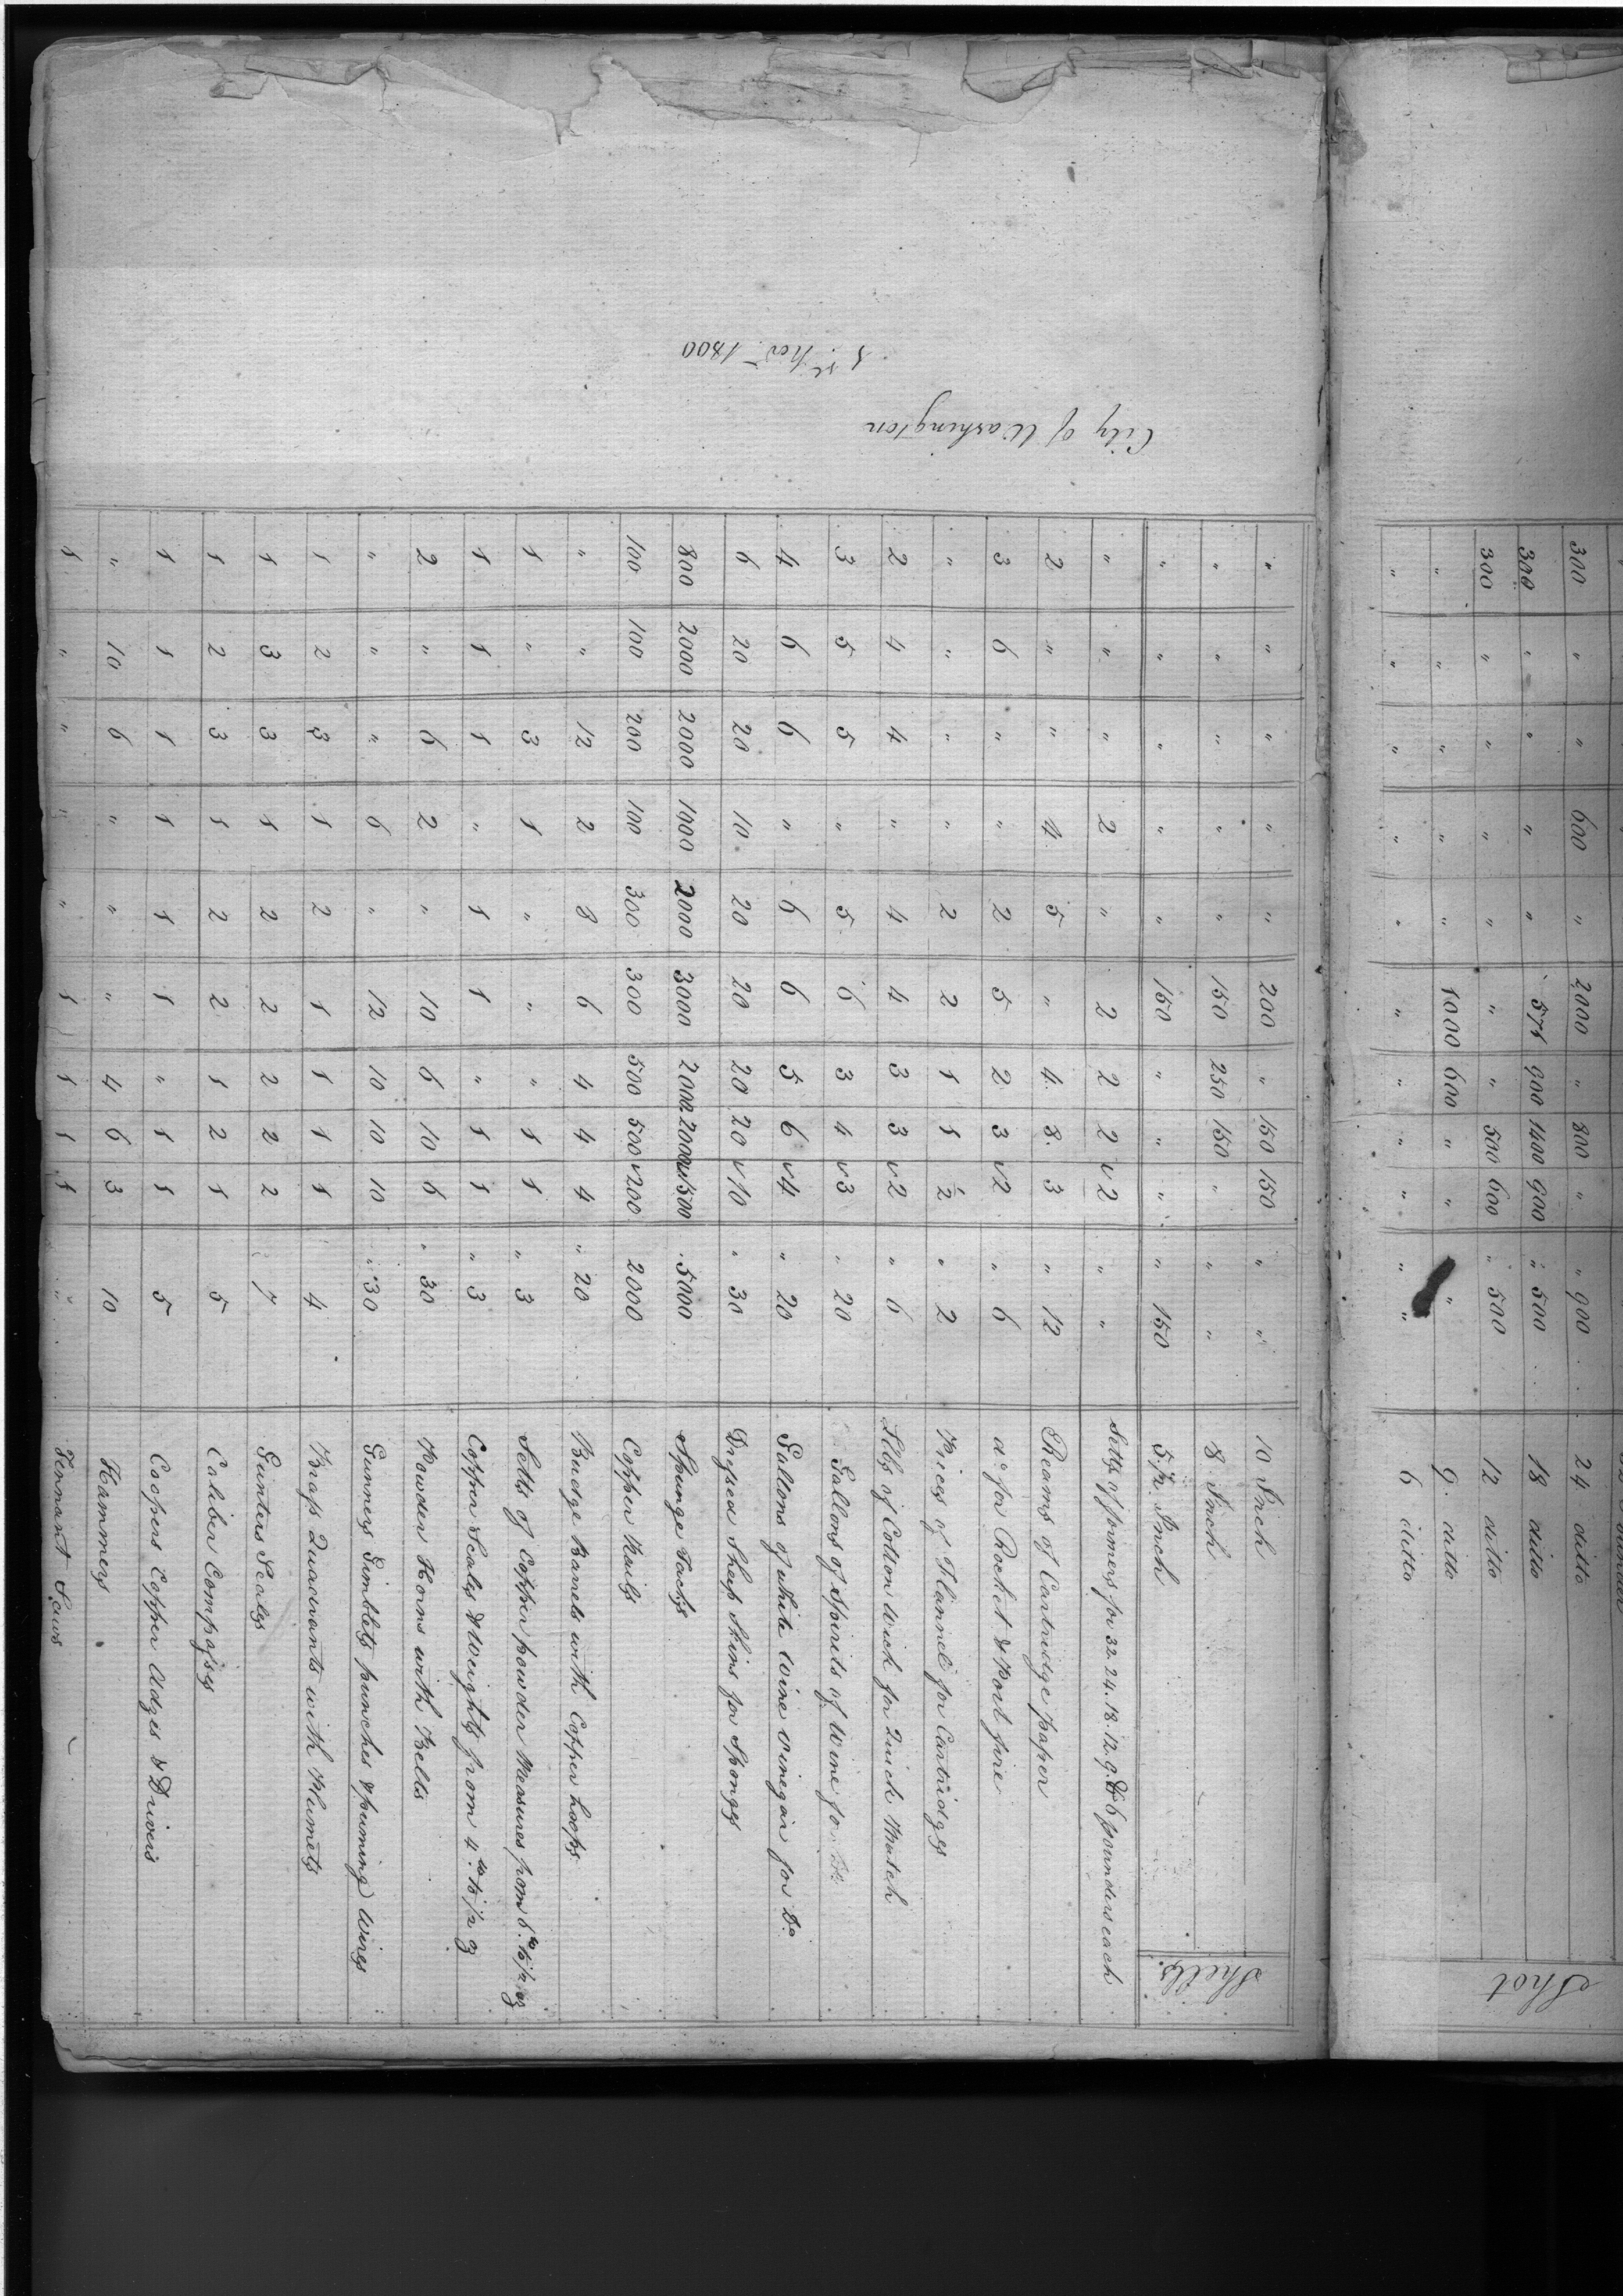 300 " " 600 " 2000 " 800 " " 900 24 ditto
300 " " " " 571 900 1400 900 " 500 18 ditto
300 " " " " " " 500 600 " 500 12 ditto
" " " " " 1000 600 " " " 9. ditto
" " " " " " " " " " " 6 ditto
Shot
" " " " " 200 " 150 150 " " 10 Inch
" " " " " 150 250 150 " " " 8 Inch
" " " " " 150 " " " " 150 5 1/2 Inch
Shells
" " " 2 " 2 2 2 √2 " " Setts of formers for 32. 24. 18. 12. 9. & 6 pounders each
2 " " 4 5 " 4 8 3 " 12 Reams of Cartridge paper
3 6 " " 2 5 2 3 √2 " 6 do for Rocket & Port fire
" " " " 2 2 1 1 2 " 2 Pieces of Flannel for Cartridges
2 4 4 " 4 4 3 3 √2 " 6 Llbs of Cotton Wick for Quick Match
3 5 5 " 5 6 3 4 √3 " 20 Gallons of Spirits of Wine fo. Do
4 6 6 " 6 6 5 6 √4 " 20 Gallons of white Wine vinegar for Do
6 20 20 10 20 20 20 20 √10 " 30 Dressed Sheep Skins for Sponges
800 2000 2000 1000 2000 3000 2000 2000 √1500 5000 Spunge Tacks
100 100 200 100 300 300 500 500 √200 2000 Copper Nails
" " 12 2 8 6 4 4 4 " 20 Budge Barrels with Copper hoops
1 " 3 1 " " " 1 1 " 3 Setts of Copper powder Measures from 6.lb to 1/2 oz
1 1 1 " 1 1 " 1 1 " 3 Copper Scales & Weights from 4.lb to 1/2 oz
2 " 6 2 " 10 6 10 6 " 30 Powder Horns with Belts
" " " 6 " 12 10 10 10 " 30 Gunners Gimblets punches & priming Wires
1 2 3 1 2 1 1 1 1 4 Brass Quadrants with Plumets
1 3 3 1 2 2 2 2 2 7 Gunters Scales
1 2 3 1 2 2 1 2 1 5 Caliber Compasses
1 1 1 1 1 1 " 1 1 5 Coopers Copper Adzes & Drivers
" 10 6 " " " 4 6 3 10 Hammers
1 " " " " 1 1 1 1 " Tennant Saws
City of Washington
Novr 1800